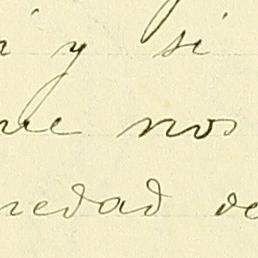 i y si
ue nos
nedad de